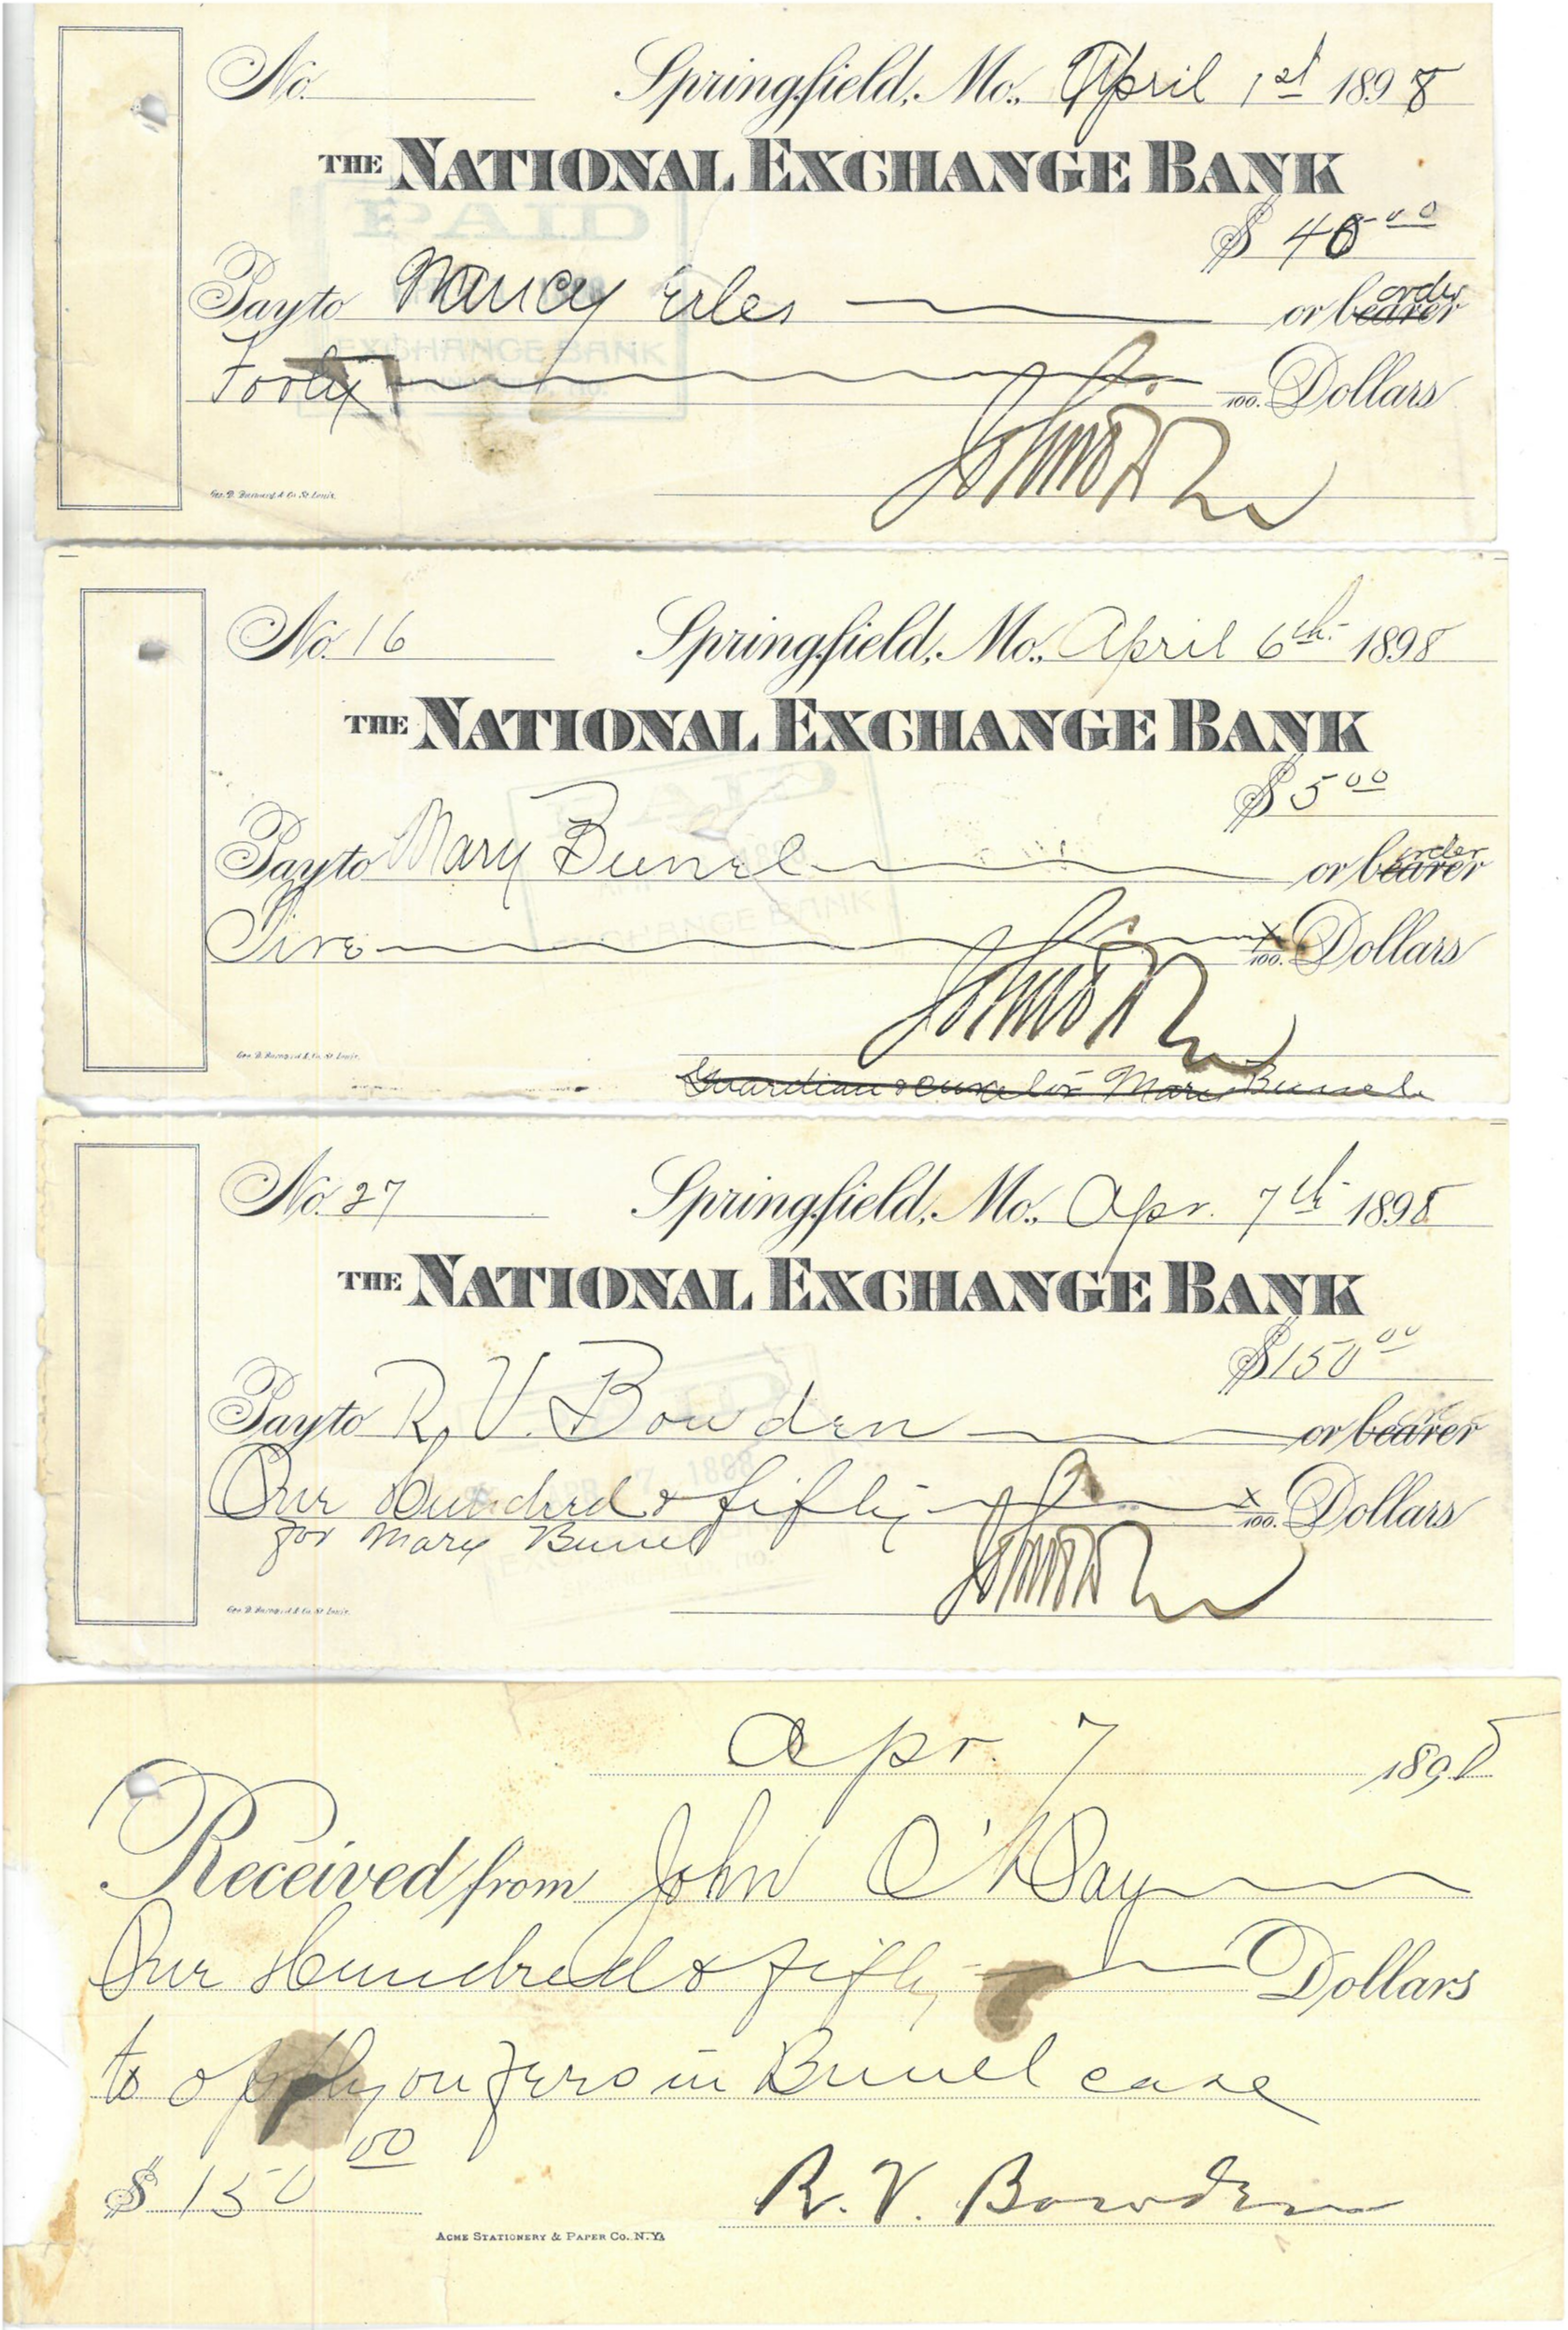 No. Springfield, Mo., April 1st 1898
THE NATIONAL EXCHANGE BANK
PAID
$ 40 00
order
Pay to Nancy Erles or bearer
EXCHANGE BANK
Forty 100. Dollars
Geo. D. Barnard & Co. St. Louis.
No. 16 Springfield, Mo., April 6th 1898
THE NATIONAL EXCHANGE BANK
PAID
$ 5 00
order
Pay to Mary Bunel or bearer
EXCHANGE BANK
Five x/100. Dollars
Geo. D. Barnard & Co. St. Louis.
Guardian & Curator Mary Bunel
No. 27 Springfield, Mo., Apr. 7th 1898
THE NATIONAL EXCHANGE BANK
$ 150 00
Pay to R. V. Bowden or bearer
APR 7 1898
One Hundred & fifty x/100. Dollars
for Mary Bunel
Geo. D. Barnard & Co. St. Louis.
Apr. 7 1898
Received from John O'Day
One Hundred & fifty Dollars
to apply on fees in Bunel case
$ 150 00
R. V. Bowden
ACME STATIONERY & PAPER CO. N.Y.